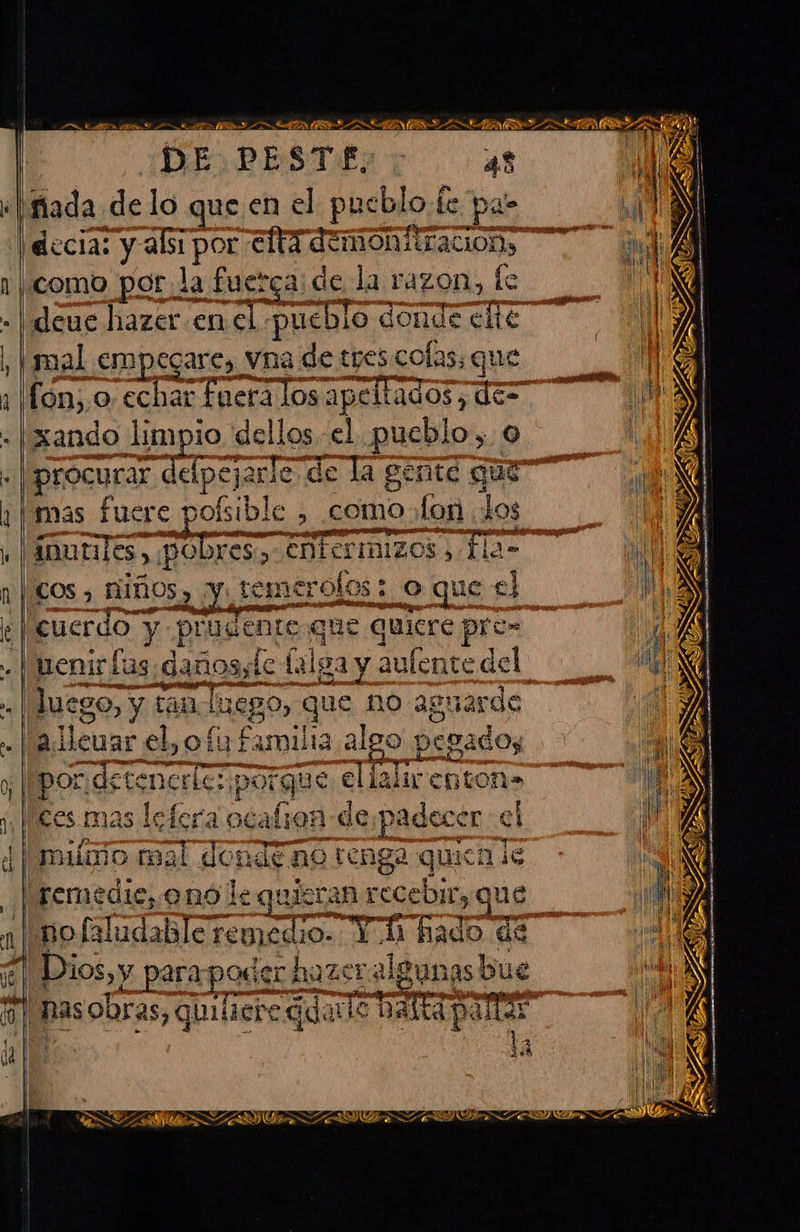 DE PESTE, 48
ñada de lo que en el pueblo ſe pa-
decia: y aſsi por eſta demonſtracion,
como por la fuerça de la razon, ſe
deue hazer en el pueblo donde eſte
mal empeçare, vna de tres coſas, que
ſon, o echar fuera los apeſtados, de-
xando limpio dellos el pueblo, o
procurar deſpejarle de la gente que
mas fuere poſsible, como ſon los
inutiles, pobres, enfermizos, fla-
cos, niños, y temeroſos: o que el
cuerdo y prudente que quiere pre-
uenir ſus daños, ſe ſalga y auſente del
luego, y tan luego, que no aguarde
a lleuar el, o ſu familia algo pegado,
por detenerſe: porque el ſalir enton-
ces mas le ſera ocaſion de padecer el
miſmo mal donde no tenga quien le
remedie, o no le quieran recebir, que
no ſaludable remedio. Y ſi fiado de
Dios, y para poder hazer algunas bue
nas obras, quiſiere q̃darſe haſta paſſar
la